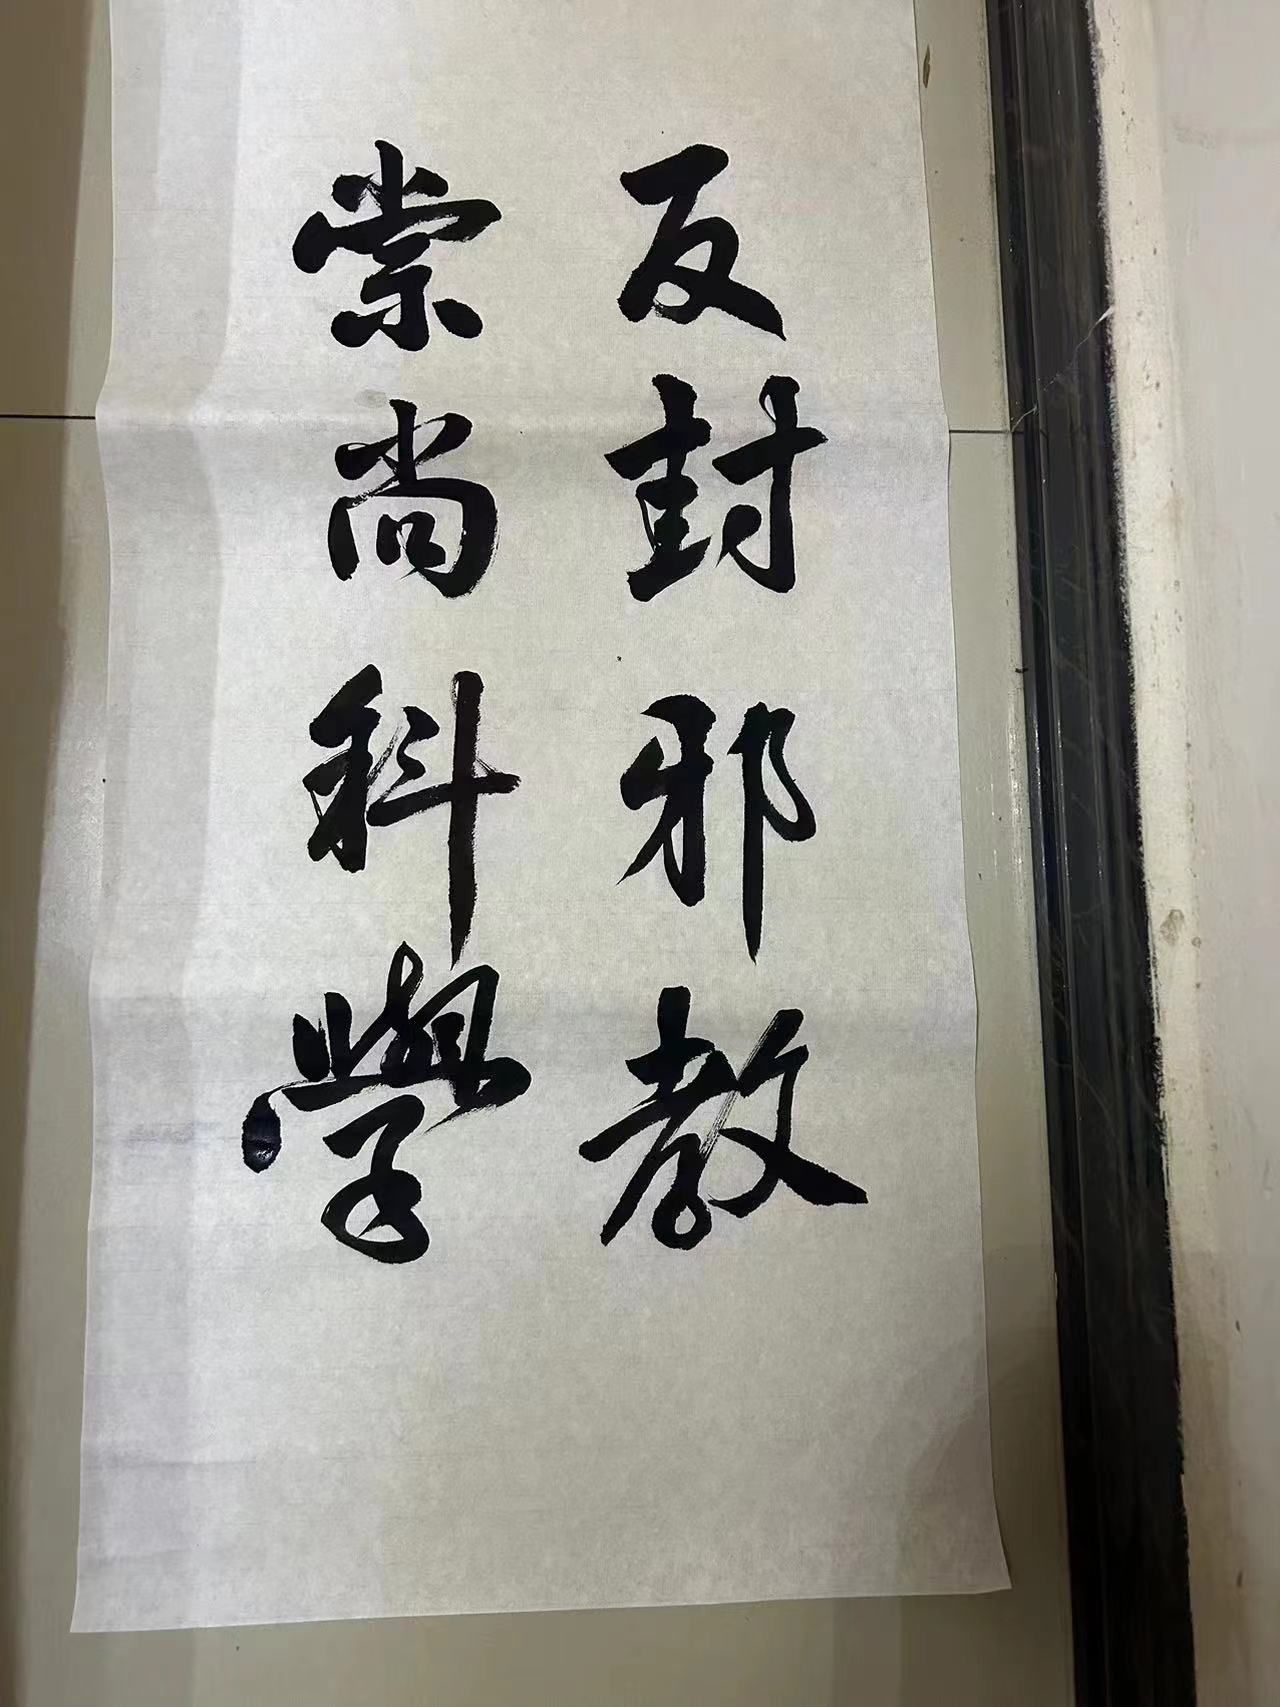 反封邪教
崇尚科學